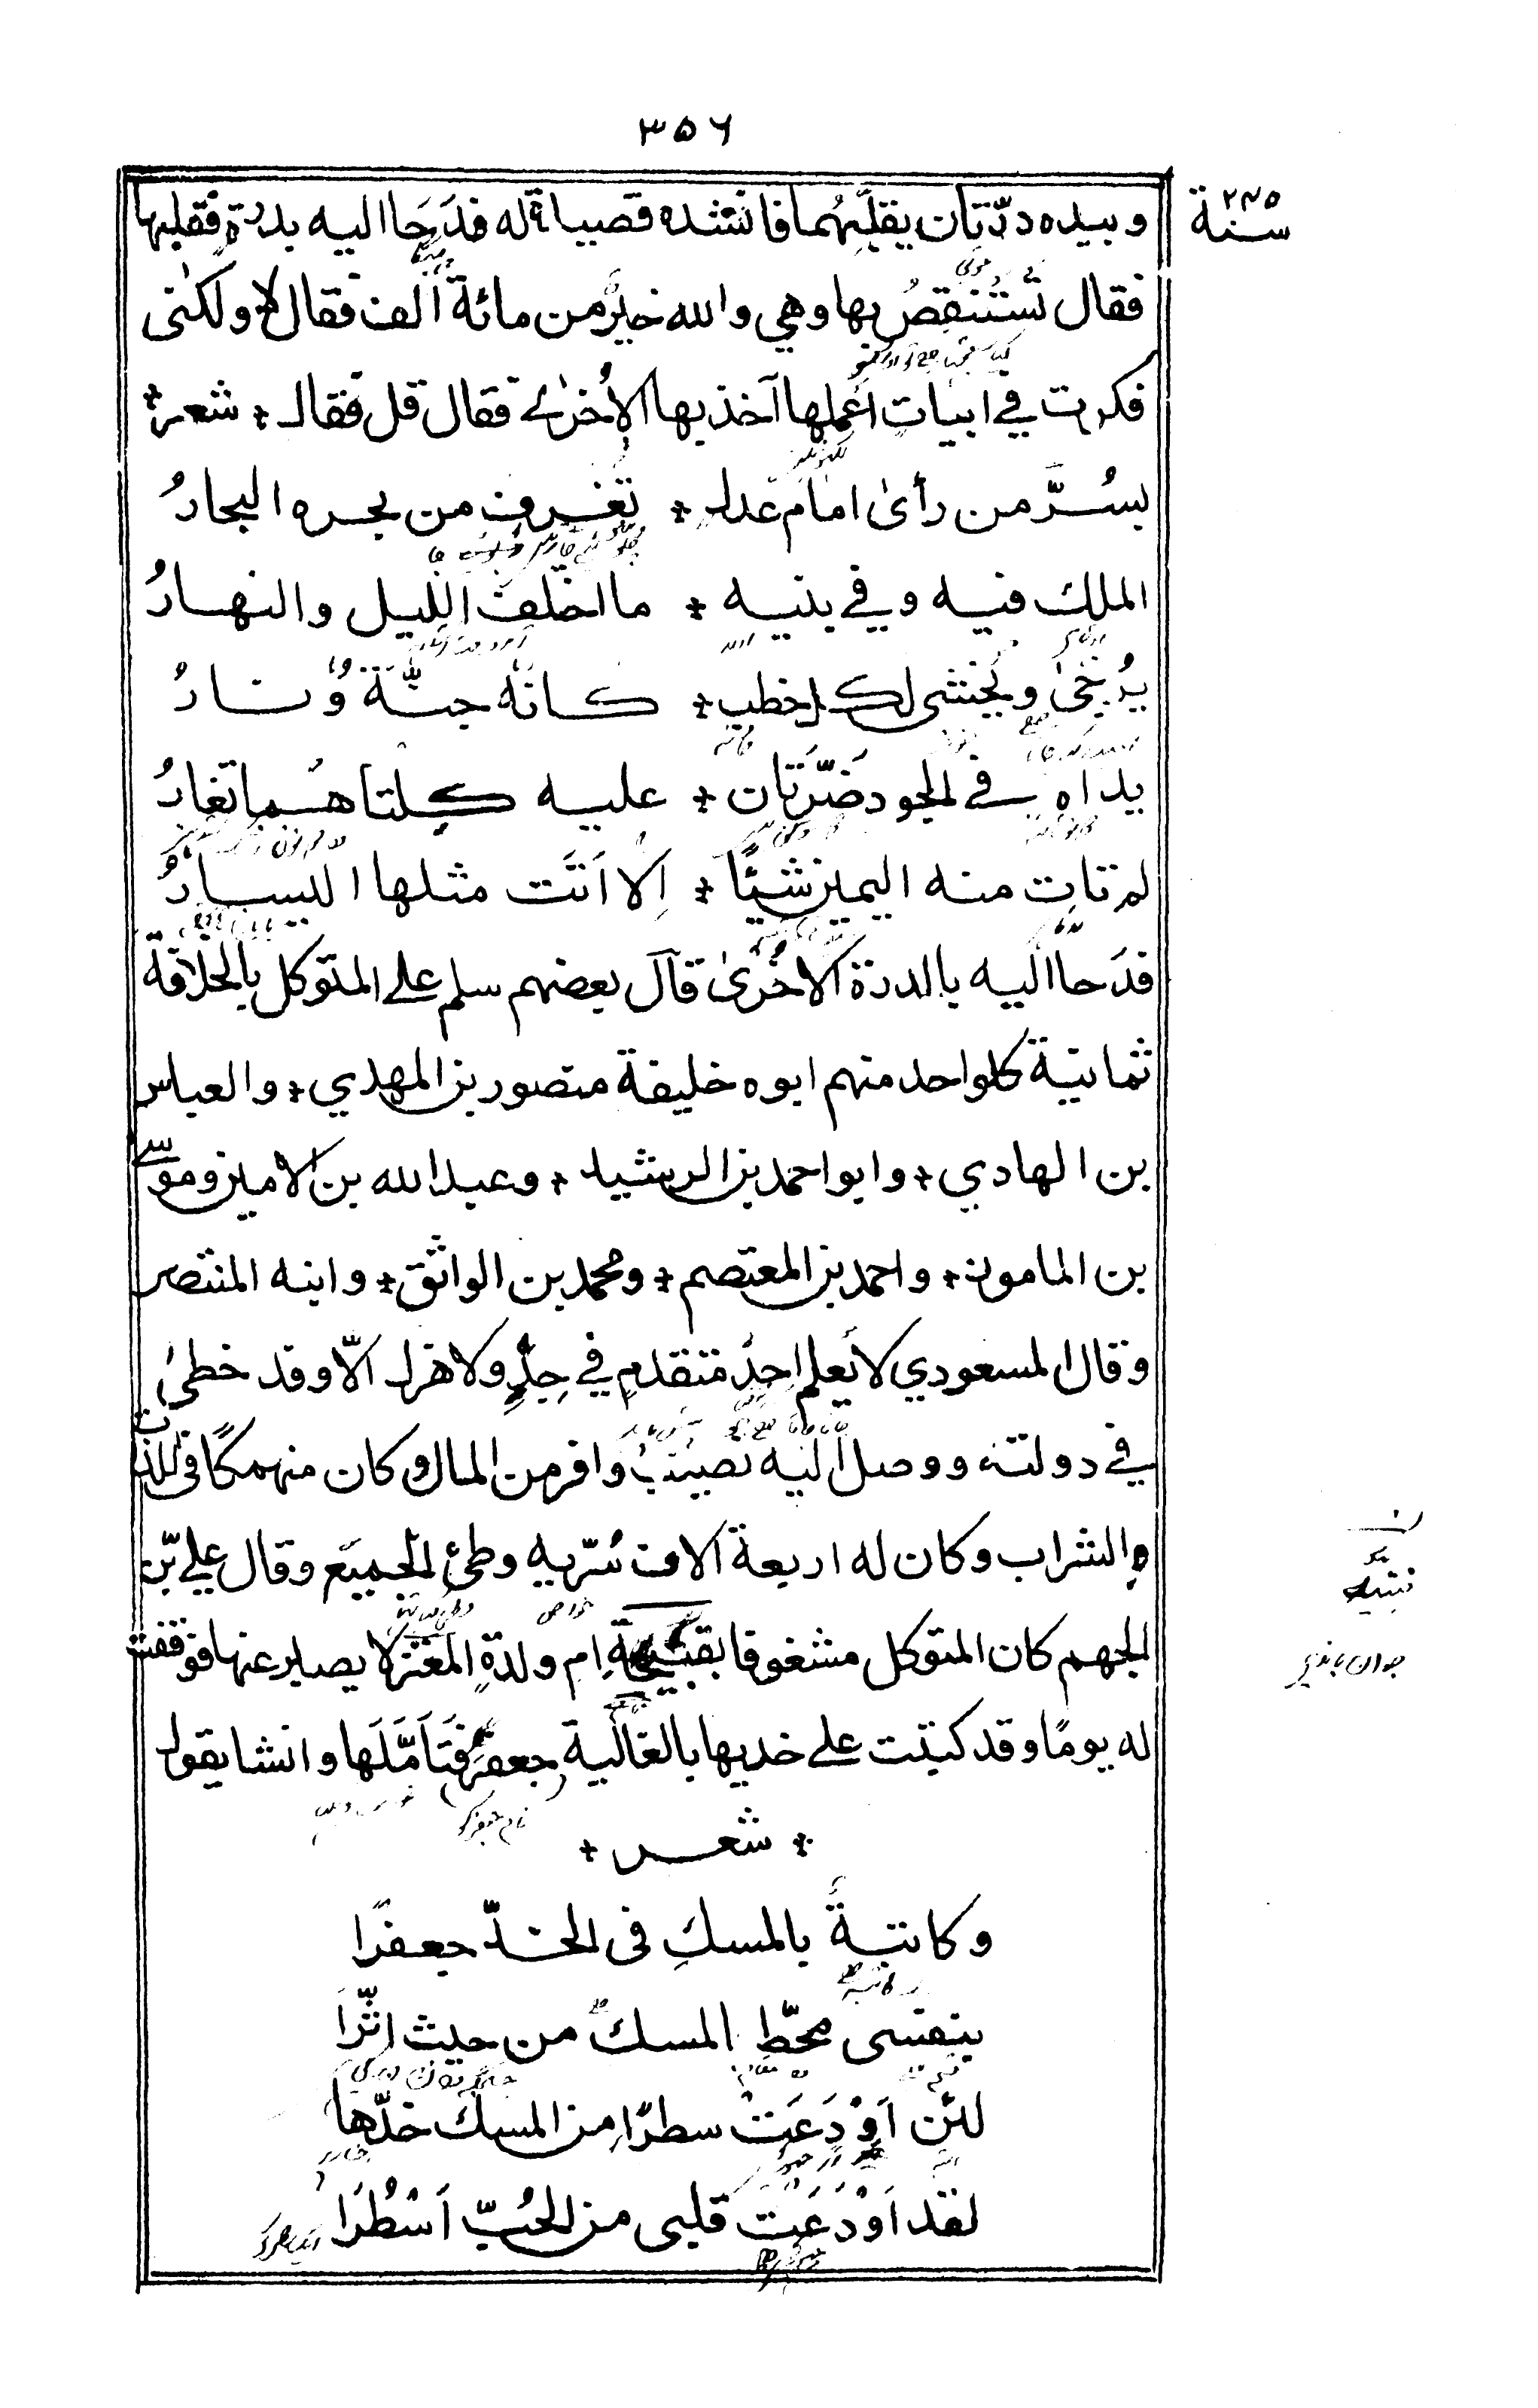 ٣٥٦
سنة ٢٣٥
وبيده درّتان يقلّبهما فانشده قصيداة له فدَحَا اليه بدرة فقلبها
فقال تستنقصُ بها وهي والله خيرٌ من مائة الف فقال لا ولكنى
فكرت في ابيات اعملها آخذ بها الأخرى فقال قل فقال ٭ شعر ٭
بسُرَّ من رأى امام عدل ٭ تغرف من بحره البحارُ
الملك فيه وفي بنيه ٭ ما اختلف الليل والنهارُ
يُرْجَىٰ ويُخشى لكل خطب ٭ كانّه جنّة ونارُ
يداه في الجود ضَرَّتان ٭ عليه كلتاهما تغارُ
لم تات منه اليمين شيئًا ٭ اِلا اَتَت مثلها اليسارُ
فدَحا اليه بالدرة الاخُرىٰ قال بعضهم سلم على المتوكل بالخلافة
ثمانية كلواحد منهم ابوه خليفة منصور بن المهدي ٭ والعباس
بن الهادي ٭ وابو احمد بن الرشيد ٭ وعبد الله بن الامين وموسى
بن المامون ٭ واحمد بن المعتصم ٭ ومحمد بن الواثق ٭ وابنه المنتصر
وقال المسعودي لا يُعلم احدٌ متقدم في جِدٍّ ولا هزل الّا وقد خطىٰ
في دولته ووصل اليه نصيبٌ وافر من المال وكان منهمكًا فى اللذات
والشراب وكان له اربعة الاف سُرّيه وطئ الجميع وقال علي بن
الجهم كان المتوكل مشغوفا بقبيحة ام ولدة المعتز لا يصبر عنها فوقفت
له يومًا وقد كتبت على خديها بالغالية جعفر فَتَاَمَّلَها وانشا يقول
٭ شعر ٭
وكاتبةً بالمسكِ فى الخدّ جعفرًا
بنفسى محّط المسك من حيث اثّرا
لئن اَوْدَعَتْ سطرًا من المسك خدّها
لقد اَوْدَعَتْ قلبى من الحُبّ اَسْطُرَا